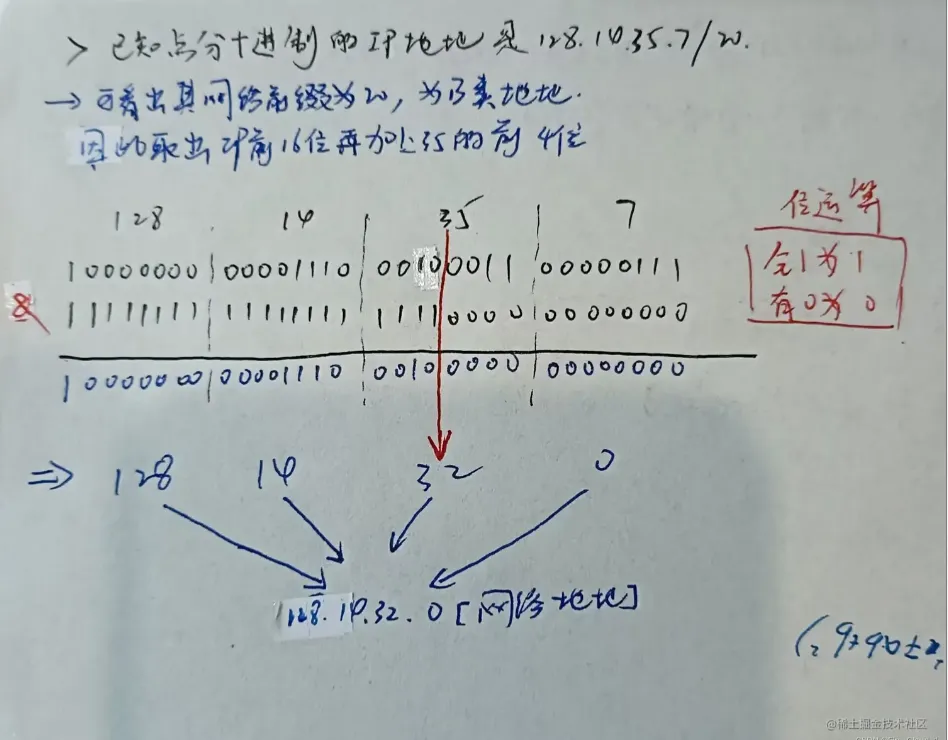 > 已知点分十进制的IP地址是128.14.35.7/20.
→ 可看出其网络前缀为20，为B类地址.
因此取出IP前16位再加上35的前4位
128 14 35 7
10000000 00001110 00100011 00000111
& 11111111 11111111 11110000 00000000
10000000 00001110 00100000 00000000
位运算
全1为1
有0为0
⇒ 128 14 32 0
128.14.32.0 [网络地址]
@稀土掘金技术社区